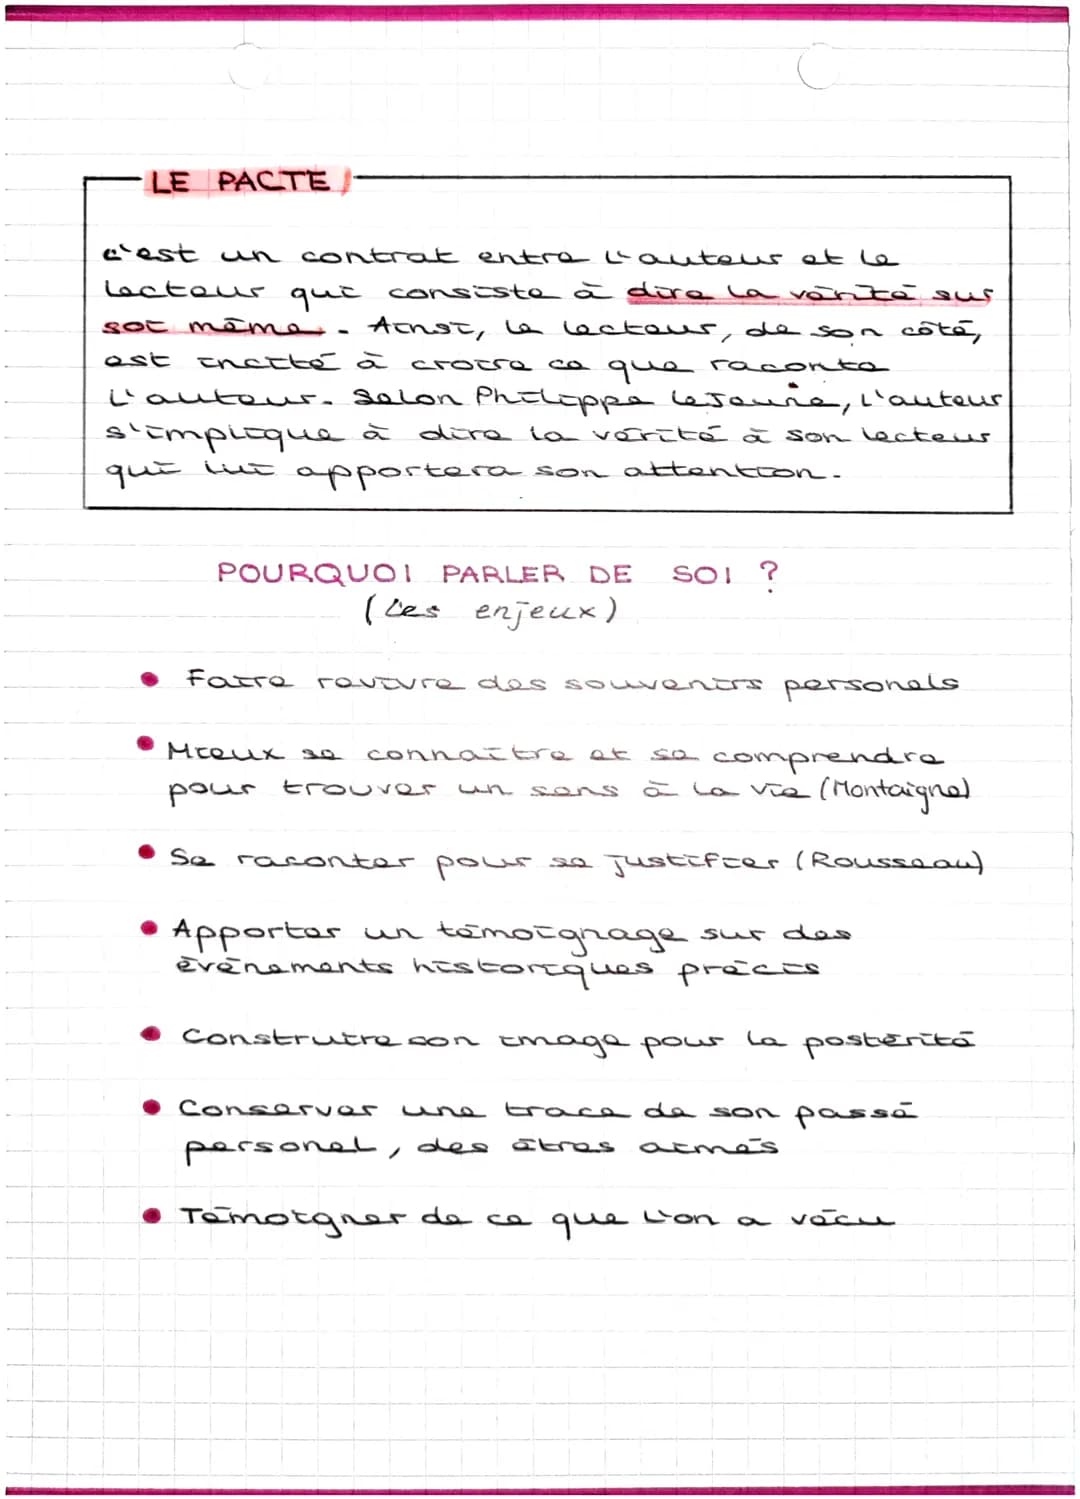 LE PACTE
c'est un contrat entre l'auteur et le
lecteur qui consiste à dire la vérité sur
soi même. Ainsi, le lecteur, de son côté,
est incité à croire ce que raconte
l'auteur. Selon Philippe Lejeune, l'auteur
s'implique à dire la vérité à son lecteur
qui lui apportera son attention.
POURQUOI PARLER DE SOI ?
(Les enjeux)
• Faire revivre des souvenirs personels
• Mieux se connaître et se comprendre
pour trouver un sens à la vie (Montaigne)
• Se raconter pour se justifier (Rousseau)
• Apporter un témoignage sur des
évènements historiques précis
• Construire son image pour la postérité
• Conserver une trace de son passé
personel, des êtres aimés
• Témoigner de ce que l'on a vécu